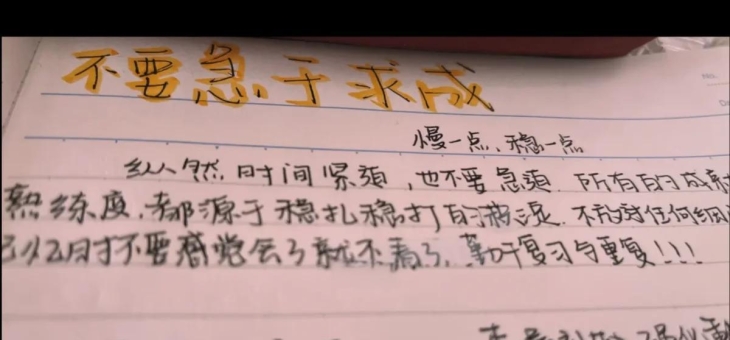 不要急于求成
慢一点、稳一点
纵然时间紧迫,也不要急迫 所有的成就
熟练度,都源于稳扎稳打的积淀.不放过任何细
记忆时不要感觉会了就不看了,勤于复习与重复!!!